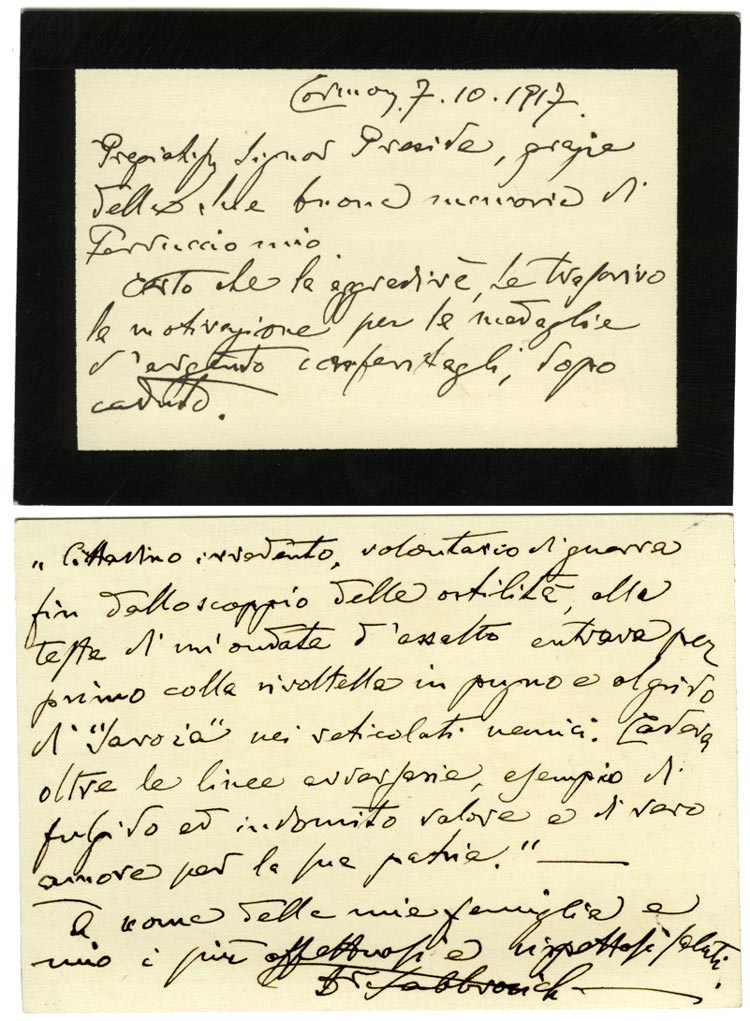 Cormons, 7.10.1917.
Pregiatiss Signor Preside, grazie
della Sue buona memoria di
Ferruccio mio
Certo che la aggradirà, Le trascrivo
la motivazione per la medaglia
d'argento conferitagli, dopo
caduto.
"Cittadino irredento, volontario di guerra
fin dallo scoppio delle ostilità, alla
testa di un'ondata d'assalto entrava per
primo colla rivoltella in pugno e al grido
di "Savoia" nei reticolati nemici. Cadeva
oltre le linee avversarie, esempio di
fulgido ed indomito valore e di raro
amore per la sua patria." —
A nome della mia famiglia e
mio i più affettuosi e rispettosi saluti.
Dr.